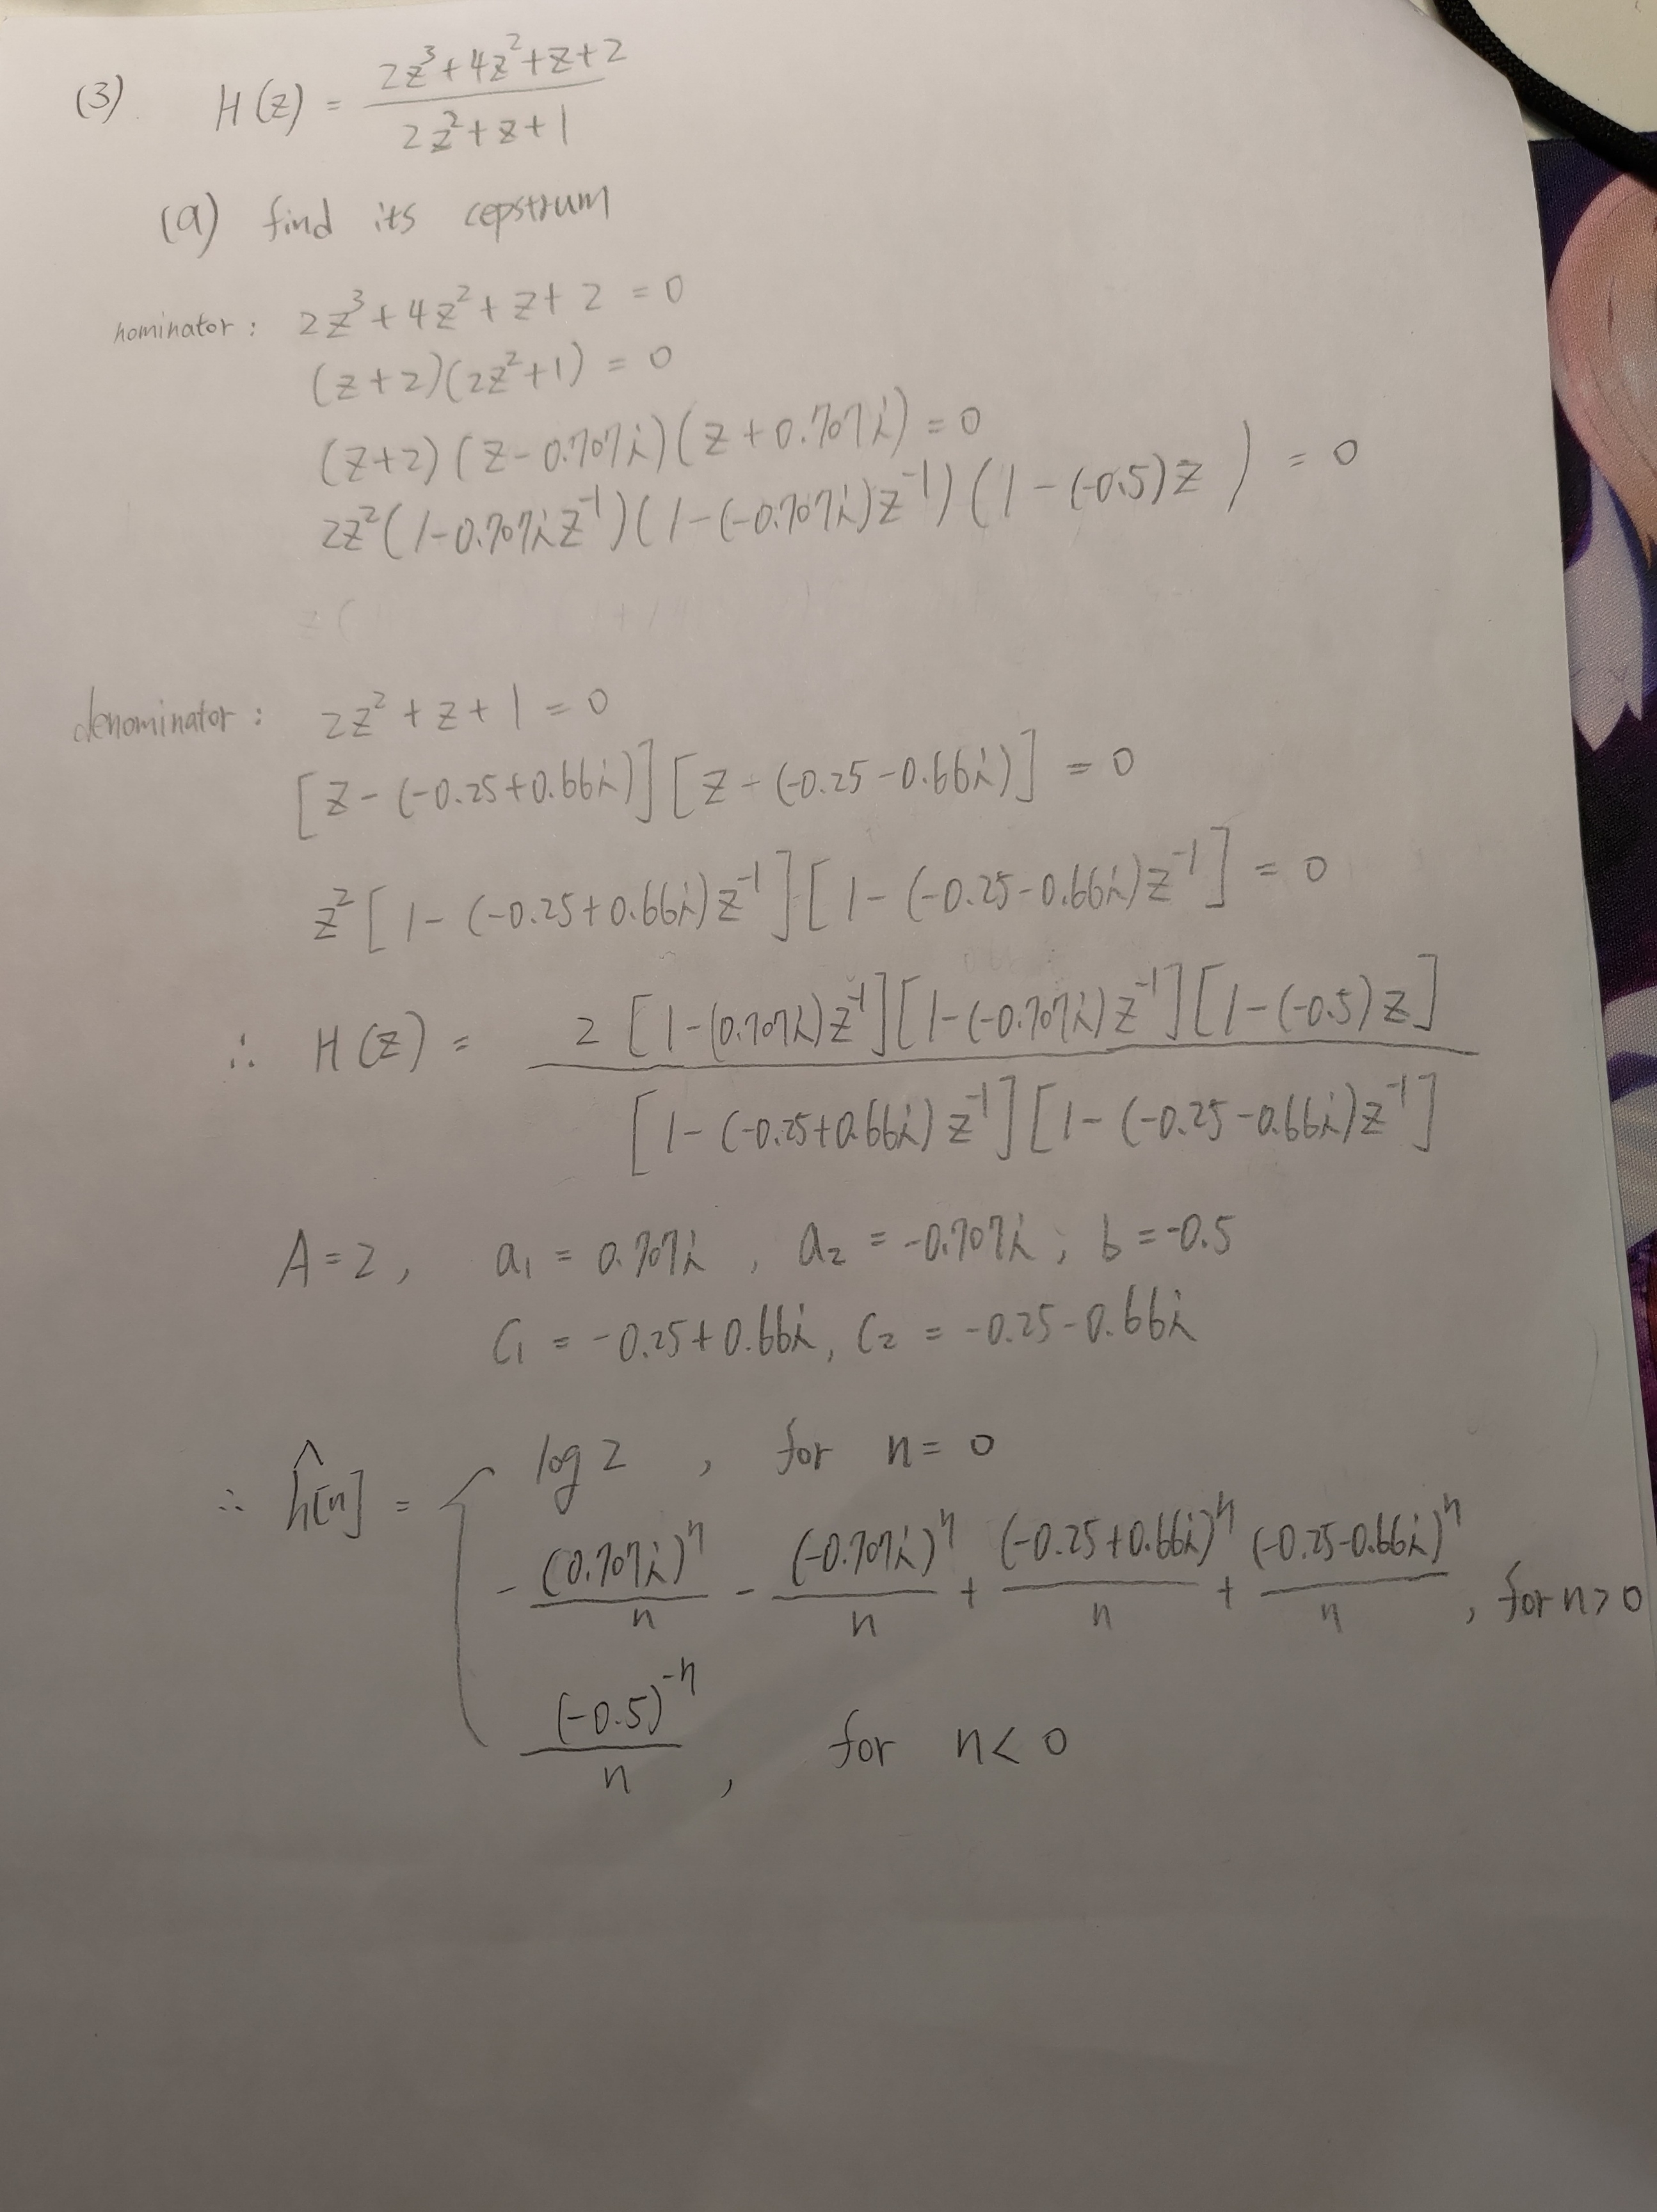 (3) H(z) = (2z³+4z²+z+2)/(2z²+z+1)
(a) find its cepstrum
nominator: 2z³+4z²+z+2 = 0
(z+2)(2z²+1) = 0
(z+2)(z-0.707i)(z+0.707i) = 0
2z²(1-0.707iz⁻¹)(1-(-0.707i)z⁻¹)(1-(-0.5)z) = 0
denominator: 2z²+z+1 = 0
[z-(-0.25+0.66i)][z-(-0.25-0.66i)] = 0
z²[1-(-0.25+0.66i)z⁻¹][1-(-0.25-0.66i)z⁻¹] = 0
∴ H(z) = 2[1-(0.707i)z⁻¹][1-(-0.707i)z⁻¹][1-(-0.5)z] / [1-(-0.25+0.66i)z⁻¹][1-(-0.25-0.66i)z⁻¹]
A=2, a₁ = 0.707i, a₂ = -0.707i; b = -0.5
C₁ = -0.25+0.66i, C₂ = -0.25-0.66i
∴ ĥ[n] = { log 2, for n = 0
-(0.707i)ⁿ/n - (-0.707i)ⁿ/n + (-0.25+0.66i)ⁿ/n + (-0.25-0.66i)ⁿ/n, for n>0
(-0.5)⁻ⁿ/n, for n<0